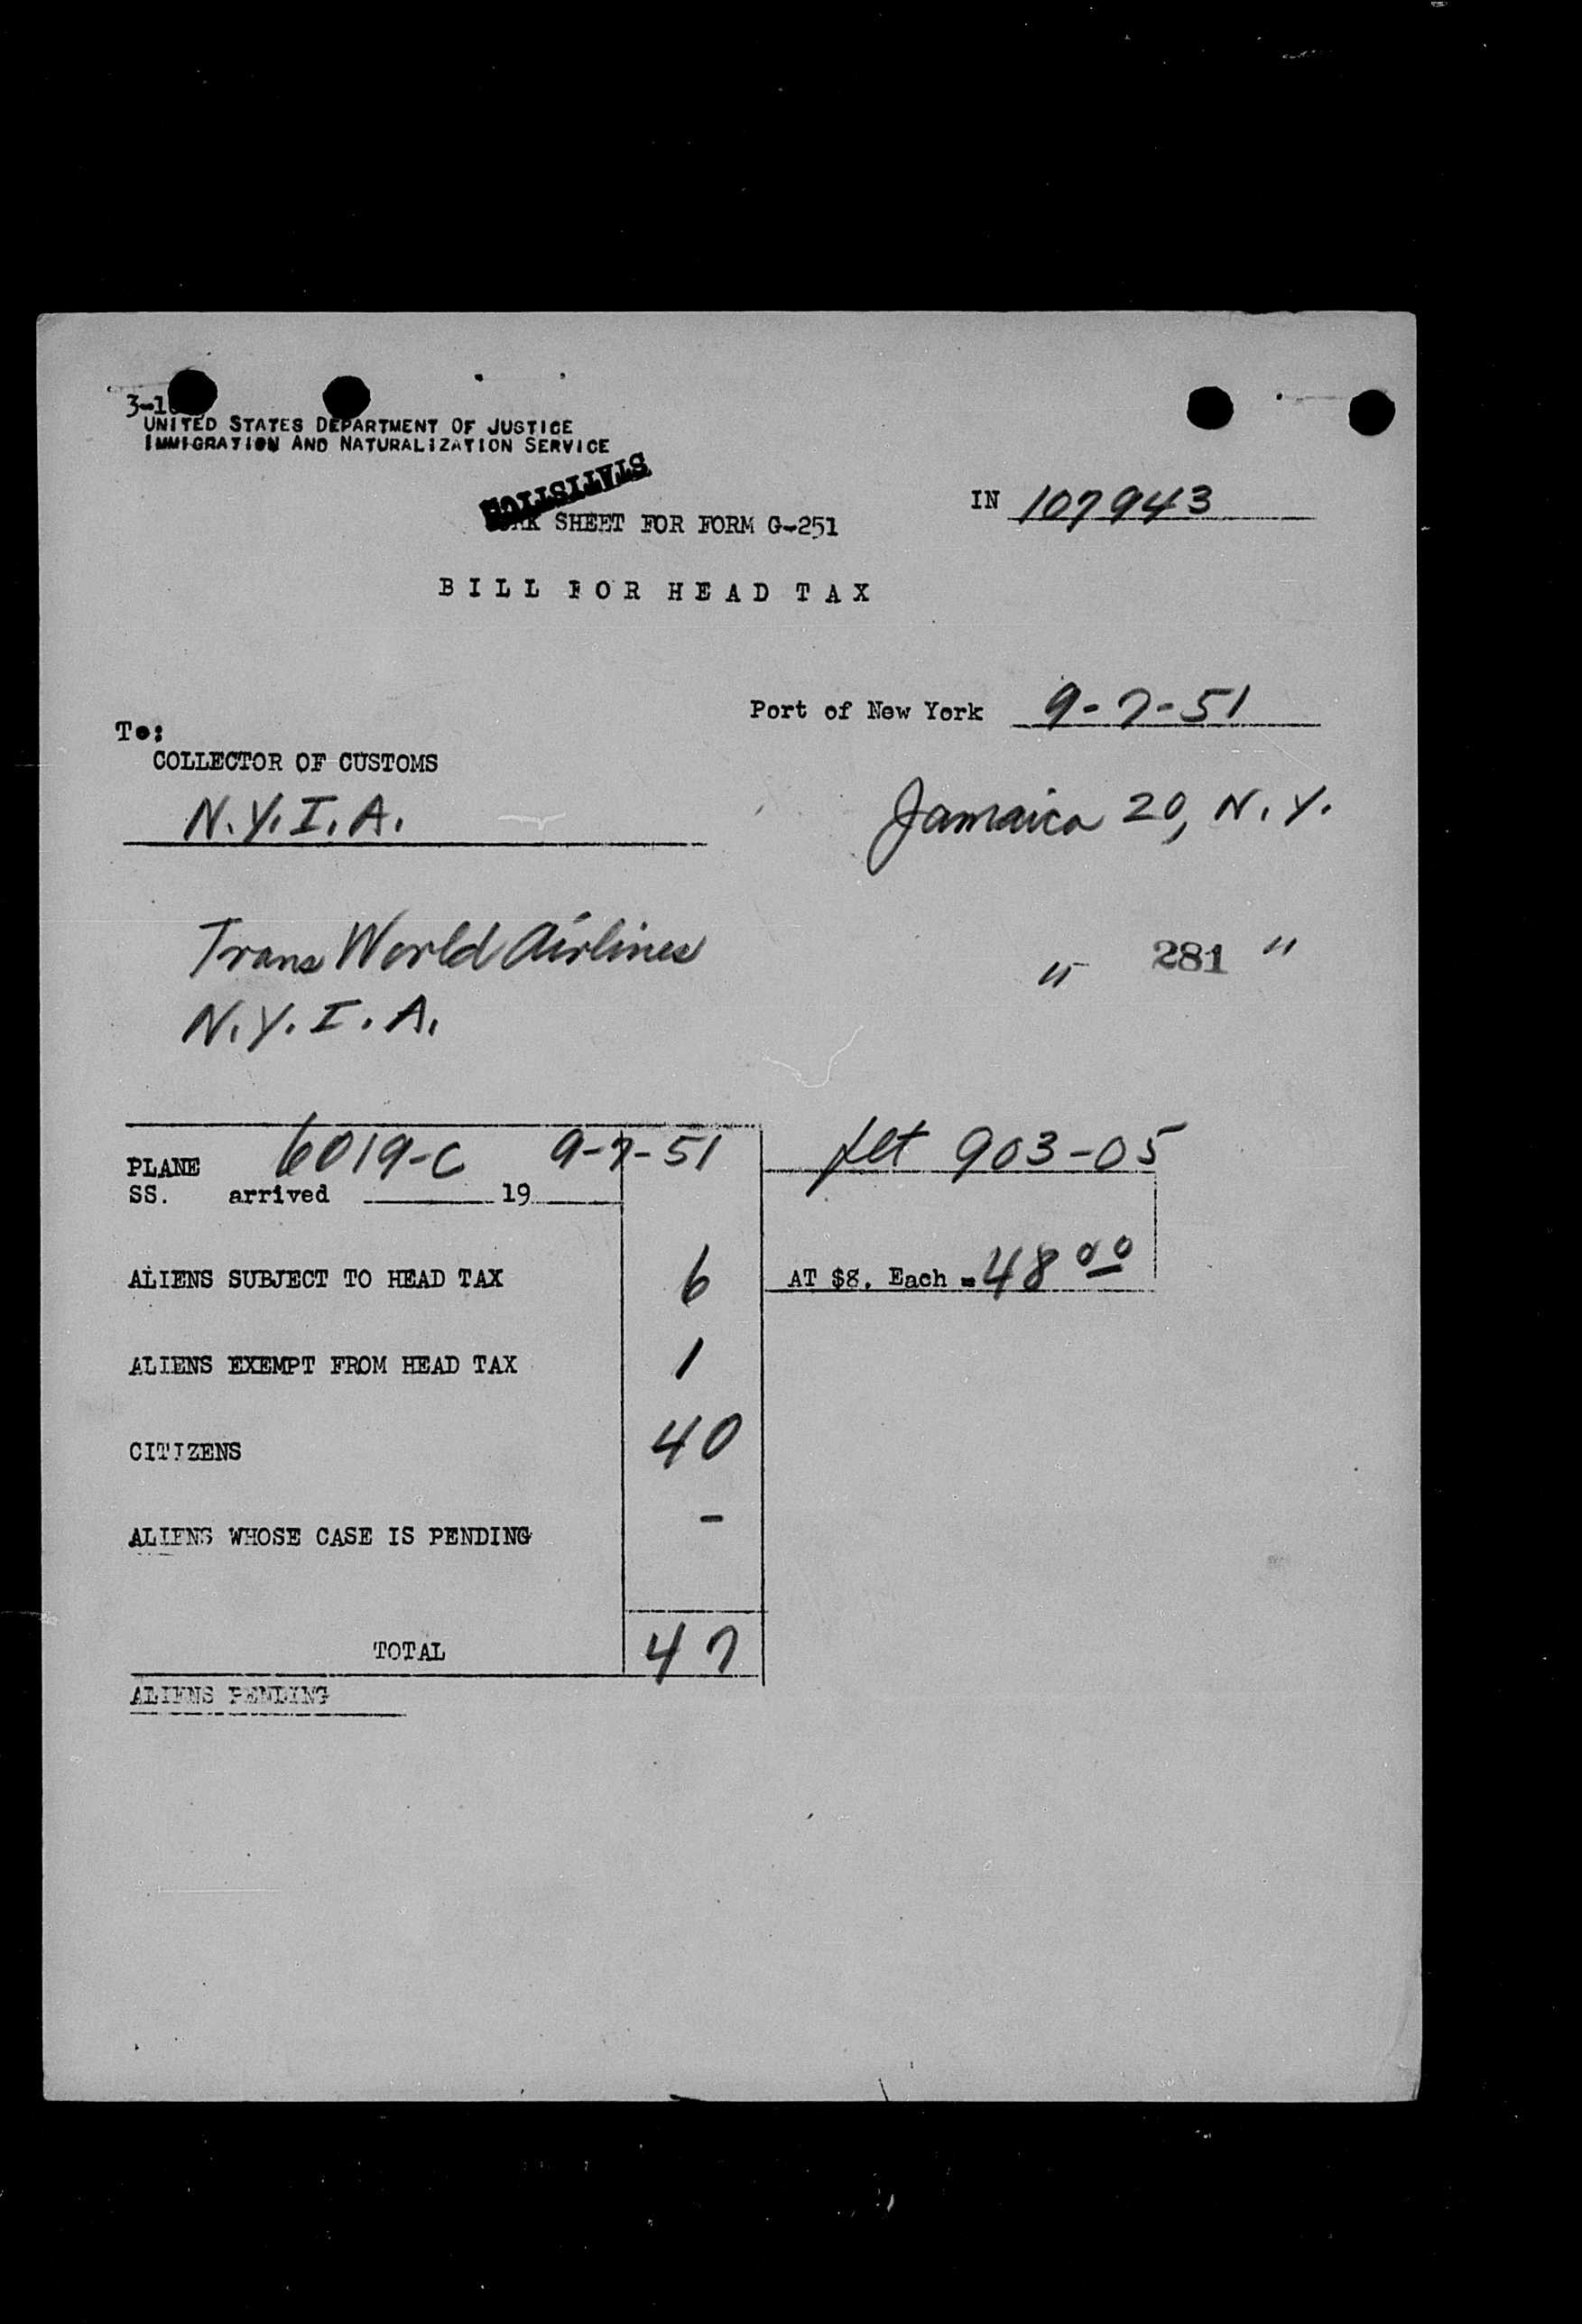 UNITED STATES DEPARTMENT OF JUSTICE
IMMIGRATION AND NATURALIZATION SERVICE
STATISTICS
SHEET FOR FORM G-251
IN 107943
BILL FOR HEAD TAX
Port of New York 9-7-51
To:
COLLECTOR OF CUSTOMS
N.Y.I.A.
Jamaica 20, N.Y.
Trans World Airlines
" 281 "
N.Y.I.A.
6019-C 9-7-51 flt 903-05
PLANE
SS. arrived 19
ALIENS SUBJECT TO HEAD TAX 6 AT $8. Each = 48 00
ALIENS EXEMPT FROM HEAD TAX 1
CITIZENS 40
ALIENS WHOSE CASE IS PENDING -
TOTAL 47
ALIENS PENDING